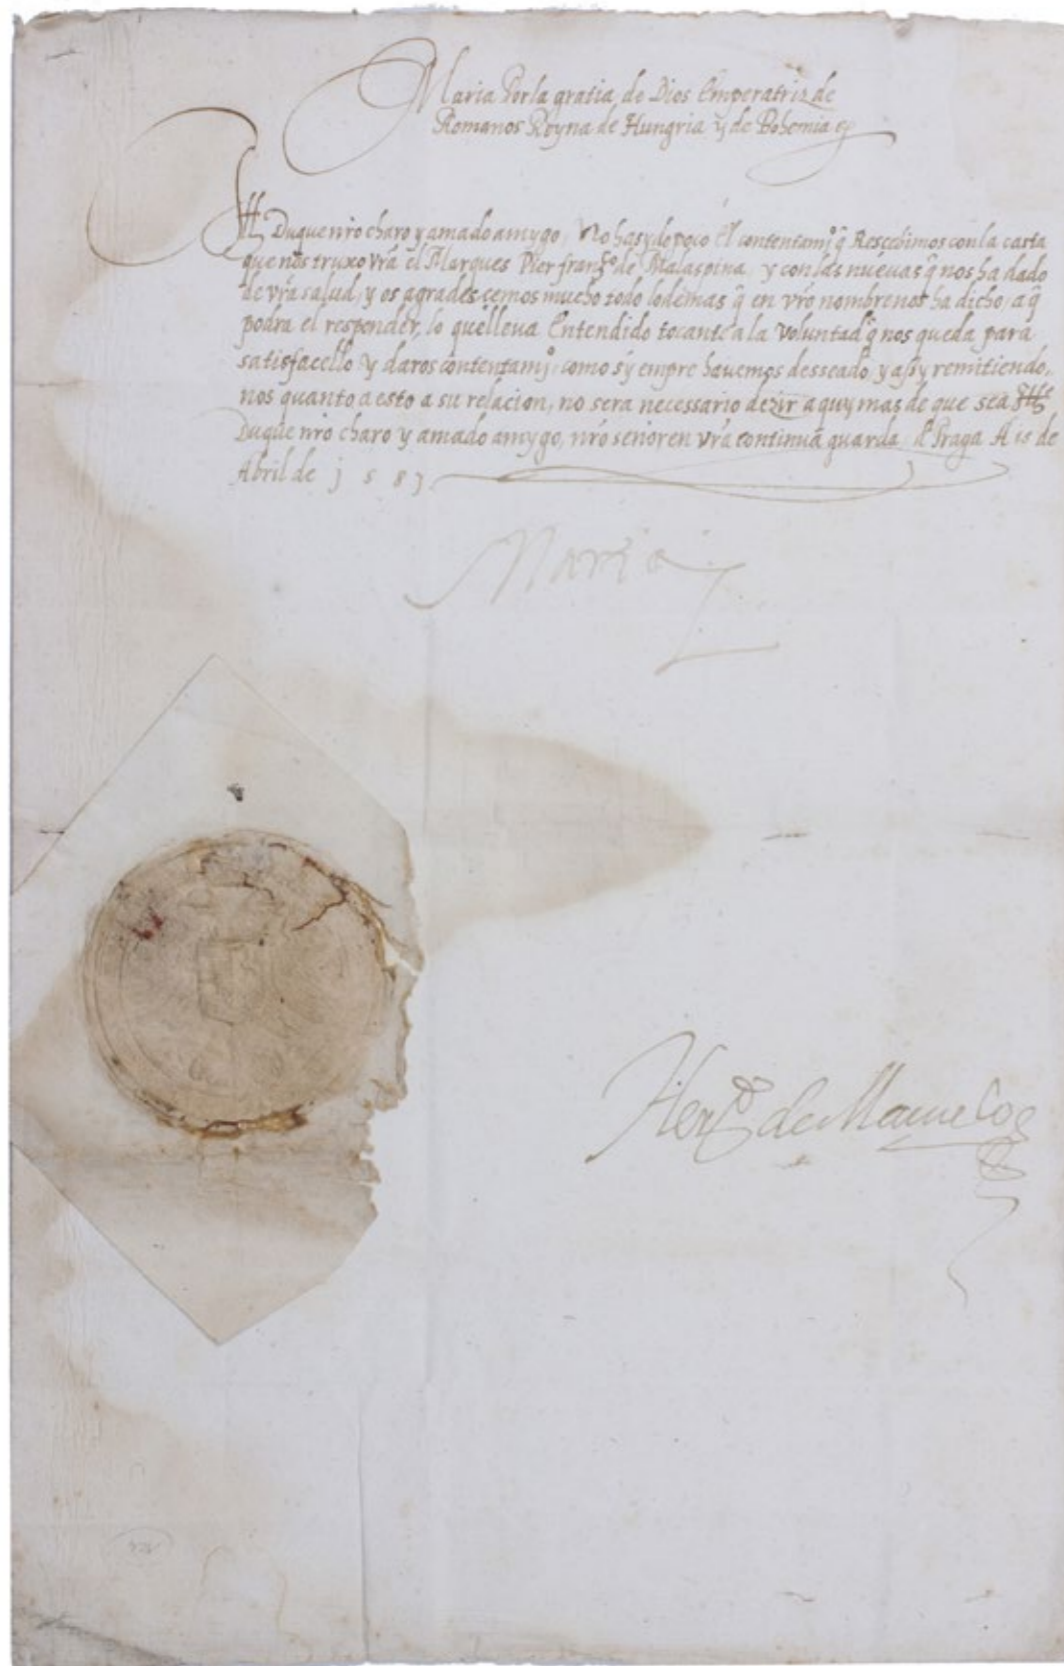 Maria Por la gratia de Dios Emperatriz de
Romanos Reyna de Hungria y de Bohemia
Ill Duque nr̃o charo y amado amygo, No ha sydo poco el contentamj.º q̃ Rescebimos con la carta
que nos truxo vr̃a el Marques Pier fran.ᶜº de Malaspina, y con las nuevas q̃ nos ha dado
de vr̃a salud, y os agradesçemos mucho todo lo demas q̃ en vr̃o nombre nos ha dicho, a q̃
podra el responder, lo que lleva Entendido tocante a la voluntad q̃ nos queda para
satisfacello y daros contentamj.º como syempre havemos desseado, y assy remitiendo,,
nos quanto a esto a su relacion, no sera necessario dezir aquy mas de que sea Ill
Duque nr̃o charo y amado amygo, nr̃o señor en vr̃a continua guarda. de Praga A is de
Abril de j s 8 j
Maria
Her.ᵈº de